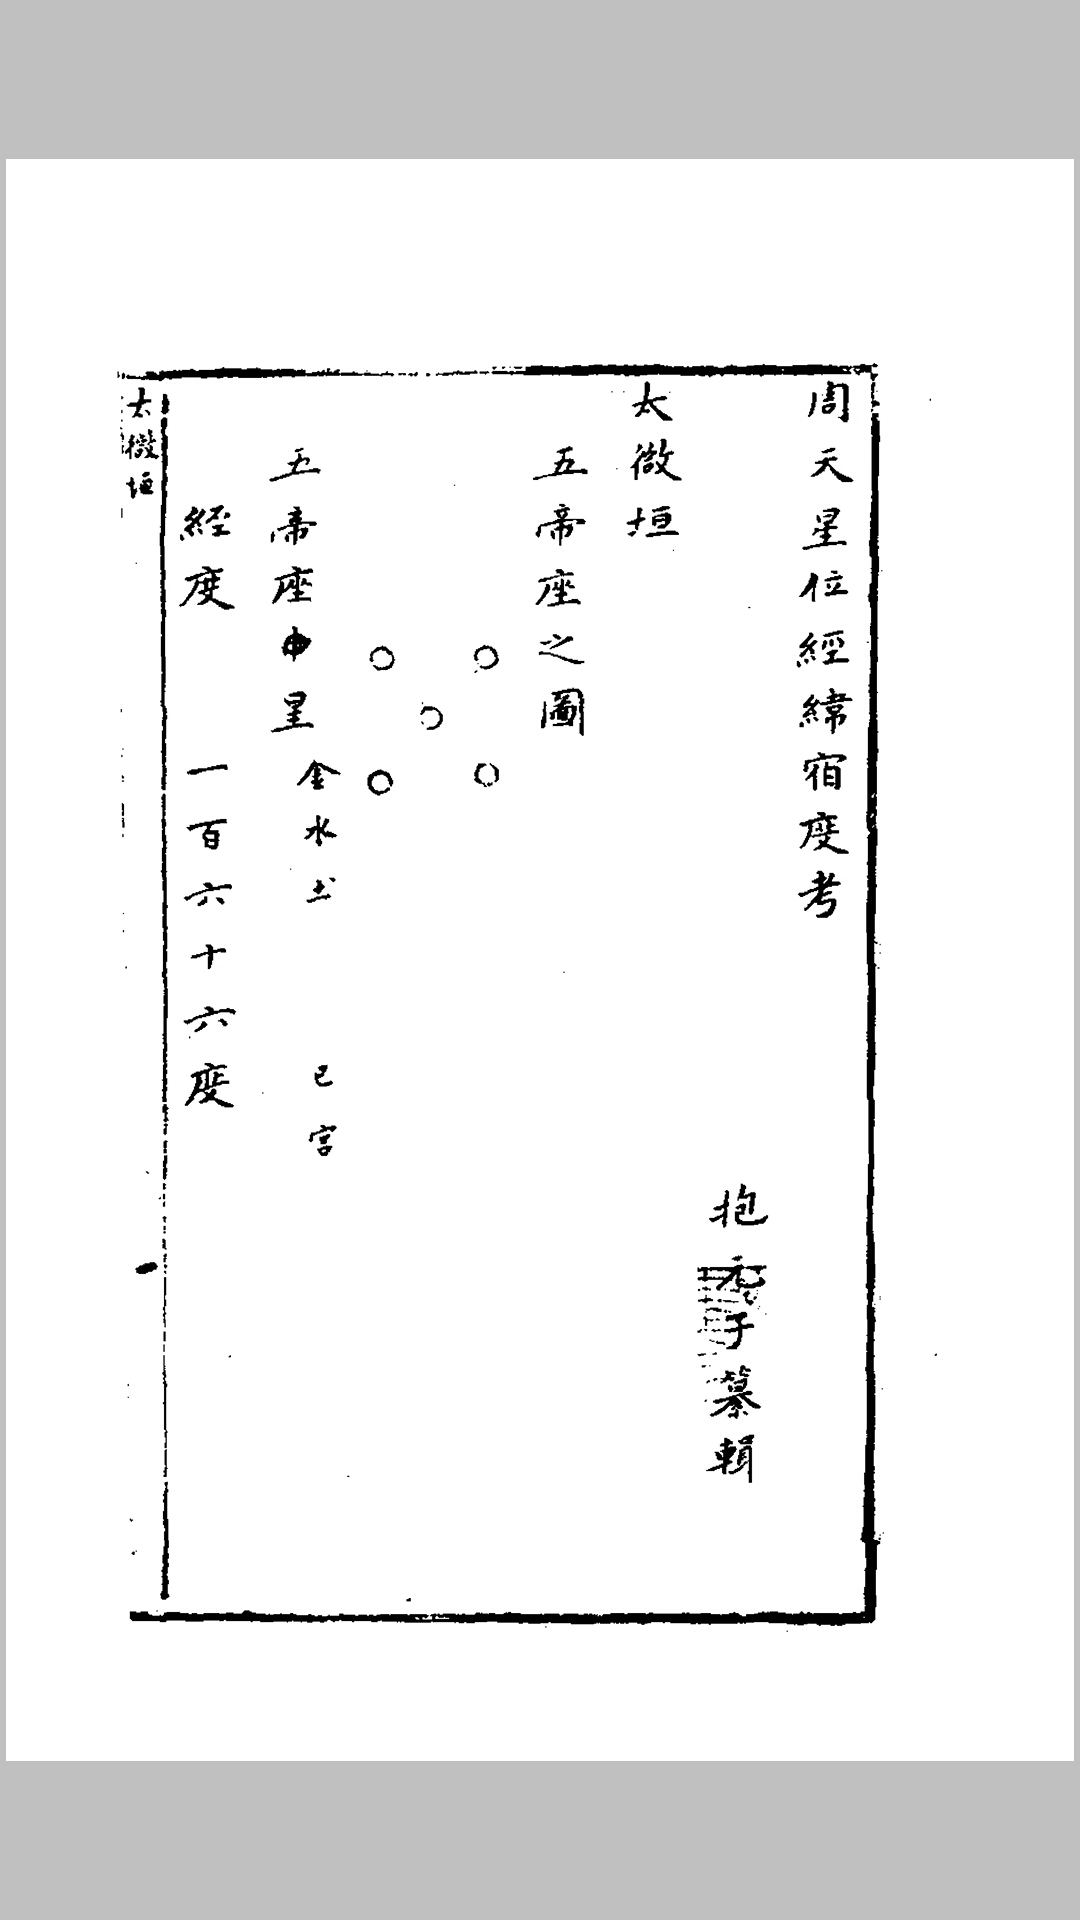 周天星位經緯宿度考
抱 子纂輯
太微垣
五帝座之圖
五帝座中星 金水土 巳宮
經度 一百六十六度
太微垣